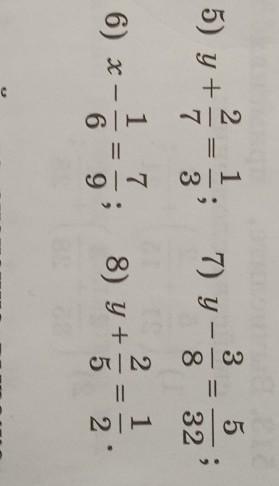 5) y + 2/7 = 1/3; 7) y − 3/8 = 5/32;
6) x − 1/6 = 7/9; 8) y + 2/5 = 1/2.